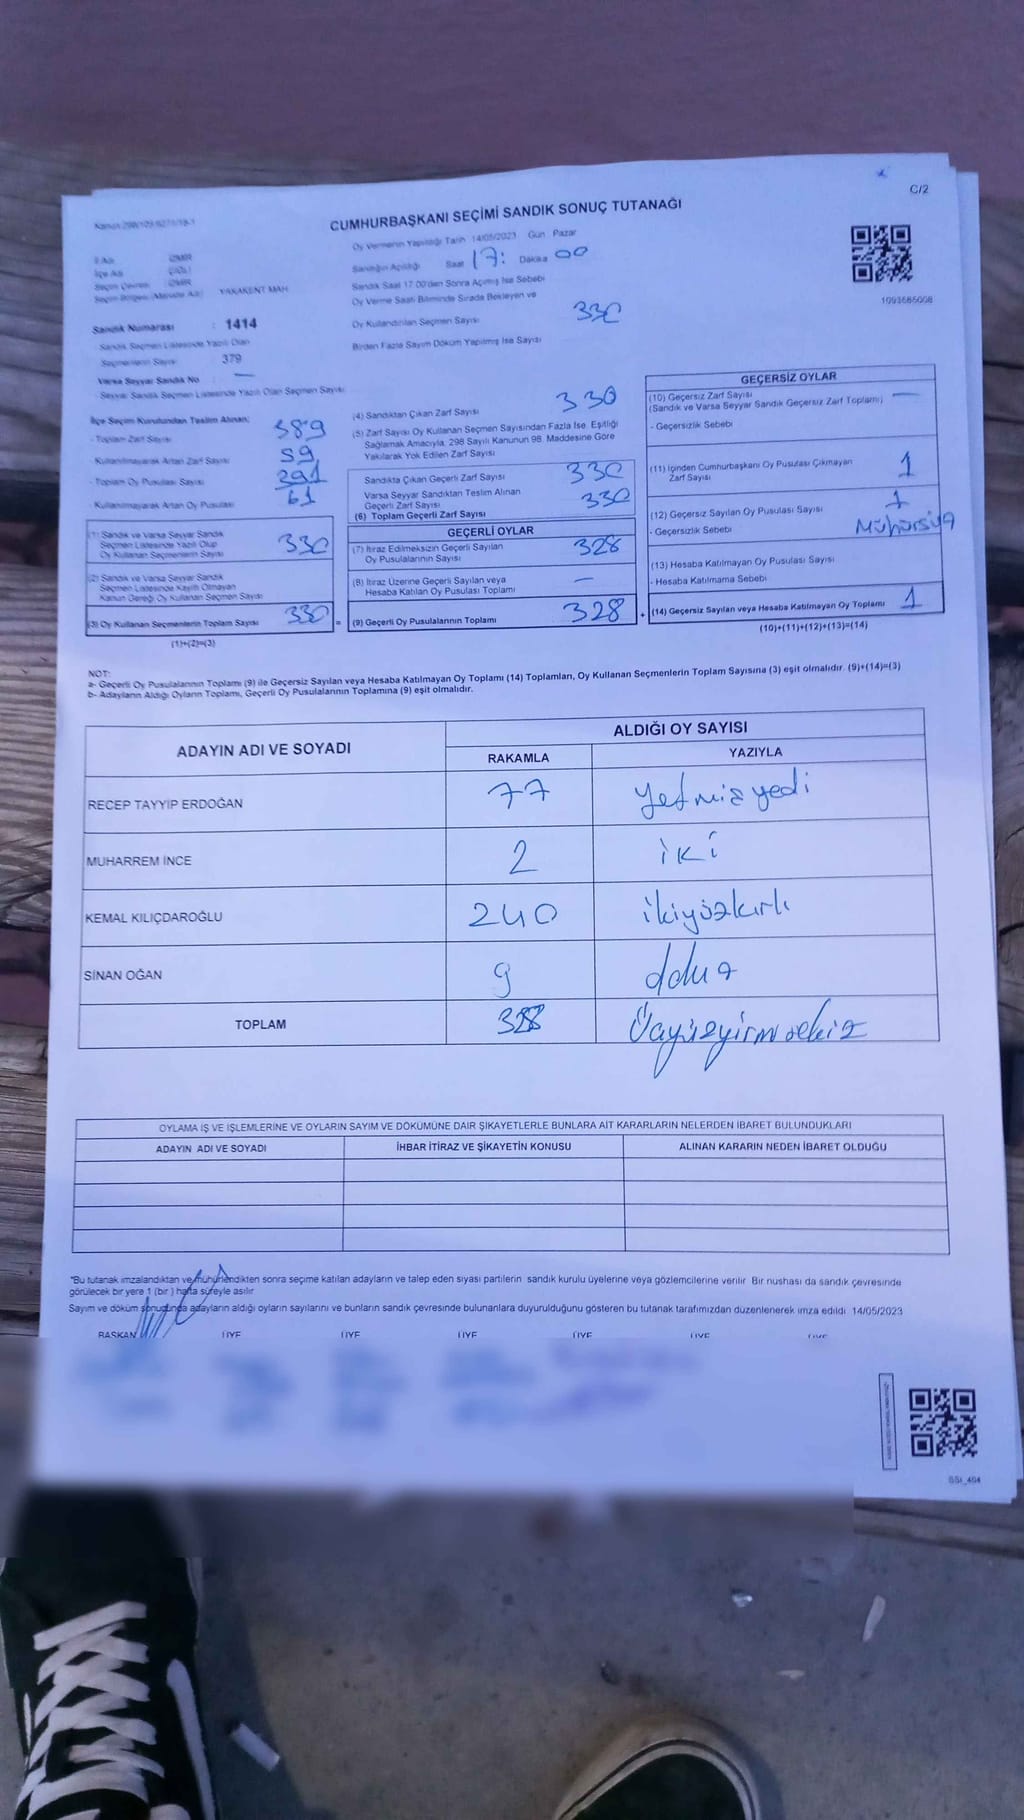 C/2
CUMHURBAŞKANI SEÇİMİ SANDIK SONUÇ TUTANAĞI
Oy Vermenin Yapıldığı Tarih 14/05/2023 Gün Pazar
Sandığın Açıldığı Saat 17: Dakika 00
Sandık Saat 17:00'den Sonra Açılmış İse Sebebi
Oy Verme Saati Bitiminde Sırada Bekleyen ve
Oy Kullandırılan Seçmen Sayısı 330
Birden Fazla Sayım Döküm Yapılmış İse Sayısı
İli Adı İZMİR
İlçe Adı ÇİĞLİ
Seçim Çevresi İZMİR
YAKAKENT MAH
Sandık Numarası : 1414
Sandık Seçmen Listesinde Yazılı Olan
Seçmenlerin Sayısı 379
Varsa Seyyar Sandık No —
Seyyar Sandık Seçmen Listesinde Yazılı Olan Seçmen Sayısı
İlçe Seçim Kurulundan Teslim Alınan;
- Toplam Zarf Sayısı 389
- Kullanılmayarak Artan Zarf Sayısı 59
- Toplam Oy Pusulası Sayısı 391
- Kullanılmayarak Artan Oy Pusulası 61
(1) Sandık ve Varsa Seyyar Sandık
Seçmen Listesinde Yazılı Olup
Oy Kullanan Seçmenlerin Sayısı 330
(2) Sandık ve Varsa Seyyar Sandık
Seçmen Listesinde Kayıtlı Olmayan
Kanun Gereği Oy Kullanan Seçmen Sayısı
(3) Oy Kullanan Seçmenlerin Toplam Sayısı 330 =
(1)+(2)=(3)
(4) Sandıktan Çıkan Zarf Sayısı 330
(5) Zarf Sayısı Oy Kullanan Seçmen Sayısından Fazla İse, Eşitliği
Sağlamak Amacıyla, 298 Sayılı Kanunun 98. Maddesine Göre
Yakılarak Yok Edilen Zarf Sayısı
Sandıkta Çıkan Geçerli Zarf Sayısı 330
Varsa Seyyar Sandıktan Teslim Alınan
Geçerli Zarf Sayısı
(6) Toplam Geçerli Zarf Sayısı 330
GEÇERLİ OYLAR
(7) İtiraz Edilmeksizin Geçerli Sayılan
Oy Pusulalarının Sayısı 328
(8) İtiraz Üzerine Geçerli Sayılan veya
Hesaba Katılan Oy Pusulası Toplamı —
(9) Geçerli Oy Pusulalarının Toplamı 328 +
GEÇERSİZ OYLAR
(10) Geçersiz Zarf Sayısı —
(Sandık ve Varsa Seyyar Sandık Geçersiz Zarf Toplamı)
- Geçersizlik Sebebi
(11) İçinden Cumhurbaşkanı Oy Pusulası Çıkmayan
Zarf Sayısı 1
(12) Geçersiz Sayılan Oy Pusulası Sayısı 1
- Geçersizlik Sebebi
(13) Hesaba Katılmayan Oy Pusulası Sayısı
- Hesaba Katılmama Sebebi
(14) Geçersiz Sayılan veya Hesaba Katılmayan Oy Toplamı 1
(10)+(11)+(12)+(13)=(14)
NOT:
a- Geçerli Oy Pusulalarının Toplamı (9) ile Geçersiz Sayılan veya Hesaba Katılmayan Oy Toplamı (14) Toplamları, Oy Kullanan Seçmenlerin Toplam Sayısına (3) eşit olmalıdır. (9)+(14)=(3)
b- Adayların Aldığı Oyların Toplamı, Geçerli Oy Pusulalarının Toplamına (9) eşit olmalıdır.
ADAYIN ADI VE SOYADI ALDIĞI OY SAYISI
RAKAMLA YAZIYLA
RECEP TAYYİP ERDOĞAN 77 Yetmiş yedi
MUHARREM İNCE 2 iki
KEMAL KILIÇDAROĞLU 240 ikiyüzkırk
SİNAN OĞAN 9 dokuz
TOPLAM 328 Üçyüzyirmi sekiz
OYLAMA İŞ VE İŞLEMLERİNE VE OYLARIN SAYIM VE DÖKÜMÜNE DAİR ŞİKAYETLERLE BUNLARA AİT KARARLARIN NELERDEN İBARET BULUNDUKLARI
ADAYIN ADI VE SOYADI İHBAR İTİRAZ VE ŞİKAYETİN KONUSU ALINAN KARARIN NEDEN İBARET OLDUĞU
*Bu tutanak imzalandıktan ve mühürlendikten sonra seçime katılan adayların ve talep eden siyasi partilerin sandık kurulu üyelerine veya gözlemcilerine verilir. Bir nushası da sandık çevresinde
görülecek bir yere 1 (bir) hafta süreyle asılır
Sayım ve döküm sonucunda adayların aldığı oyların sayılarını ve bunların sandık çevresinde bulunanlara duyurulduğunu gösteren bu tutanak tarafımızdan düzenlenerek imza edildi. 14/05/2023
BAŞKAN ÜYE ÜYE ÜYE ÜYE ÜYE ÜYE